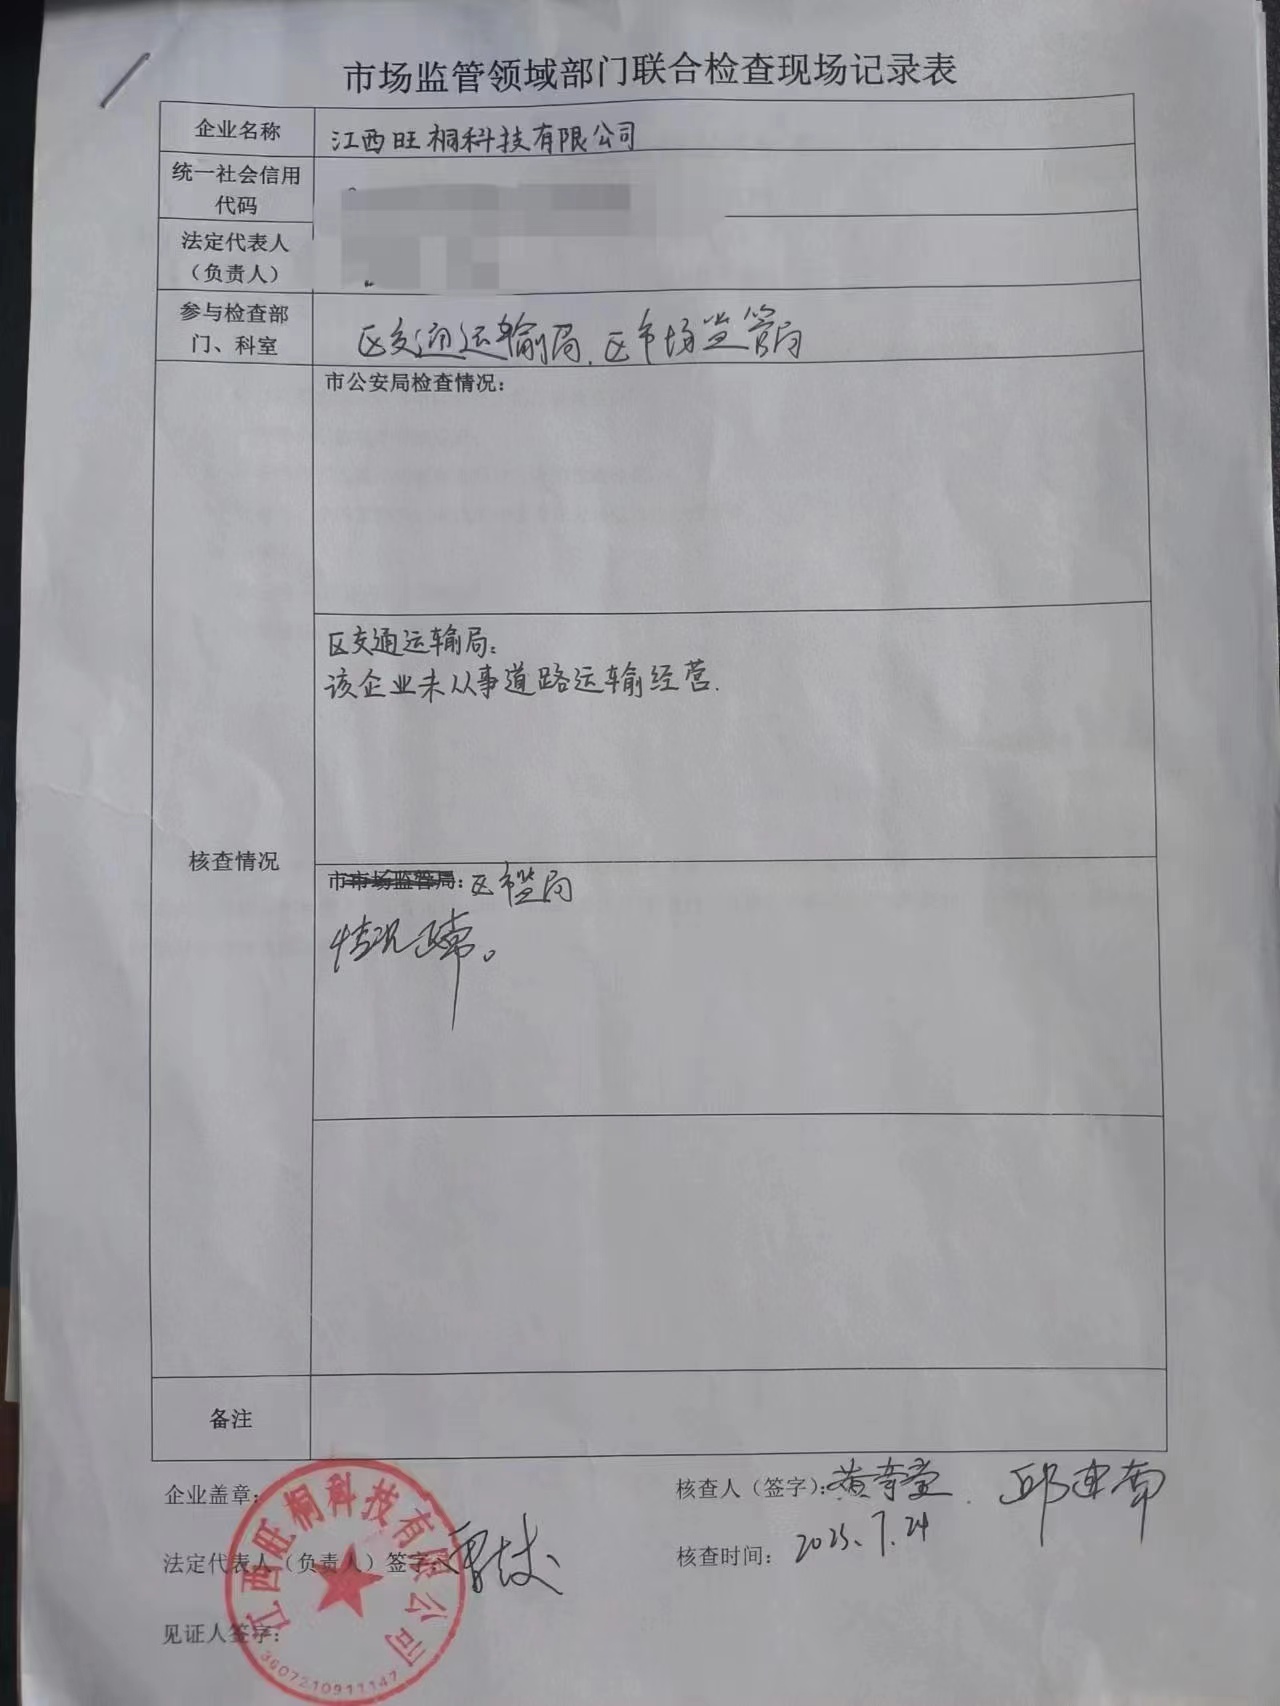 市场监管领域部门联合检查现场记录表
企业名称
江西旺桐科技有限公司
统一社会信用
代码
法定代表人
（负责人）
参与检查部
门、科室
区交通运输局、区市场监管局
核查情况
市公安局检查情况：
区交通运输局：
该企业未从事道路运输经营.
市市场监管局：区市监局
情况正常。
备注
企业盖章：
核查人（签字）：
法定代表人（负责人）签字：
核查时间：2025.7.24
见证人签字：
江西旺桐科技有限公司
3607210911147